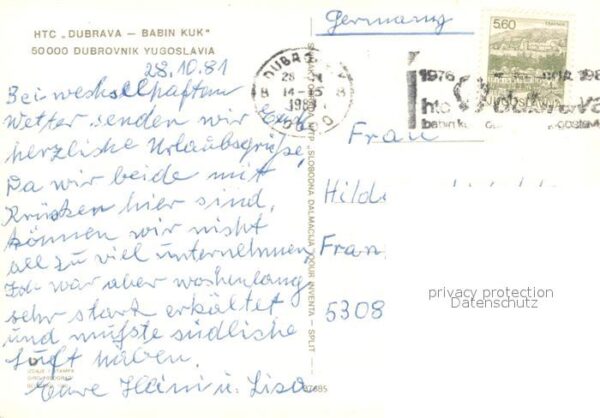 HTC „DUBRAVA — BABIN KUK"
50000 DUBROVNIK YUGOSLAVIA
28.10.81
Bei wechselhaftem
Wetter senden wir Euch
herzliche Urlaubsgrüße,
Da wir beide mit
Krücken hier sind,
können wir nicht
all zu viel unternehmen,
Ich war aber wochenlang
sehr stark erkältet
und mußte südliche
Luft haben.
Eure Hanni u. Lisa
"SLOBODNA DALMACIJA" OOUR INVENTA — SPLIT
Germany
5,60
DUBROVNIK
28
14-15
1981
1976
htc
babin kuk
Frau
Hilde
Fran
5308
privacy protection
Datenschutz